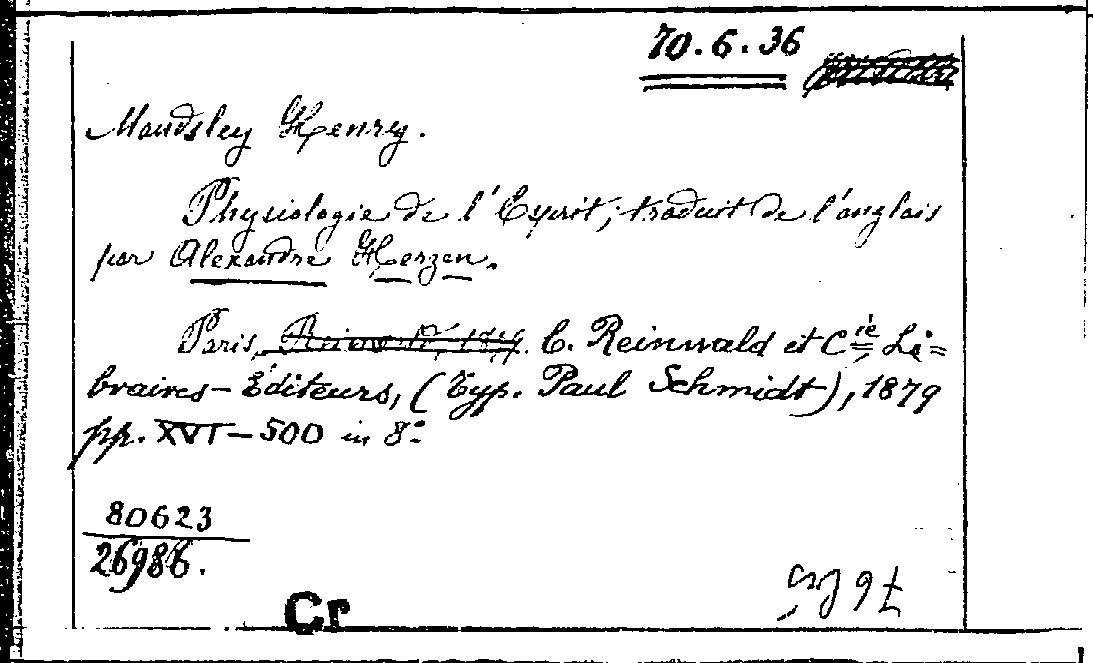 70.6.36
Maudsley Henry.
Physiologie de l'Esprit; traduit de l'anglais
par Alexandre Herzen.
Paris, Reinwald, 1879. C. Reinwald et Cie Li=
braires-Éditeurs, (Typ. Paul Schmidt), 1879
pp. XVI-500 in 8º
80623
26986.
Cr